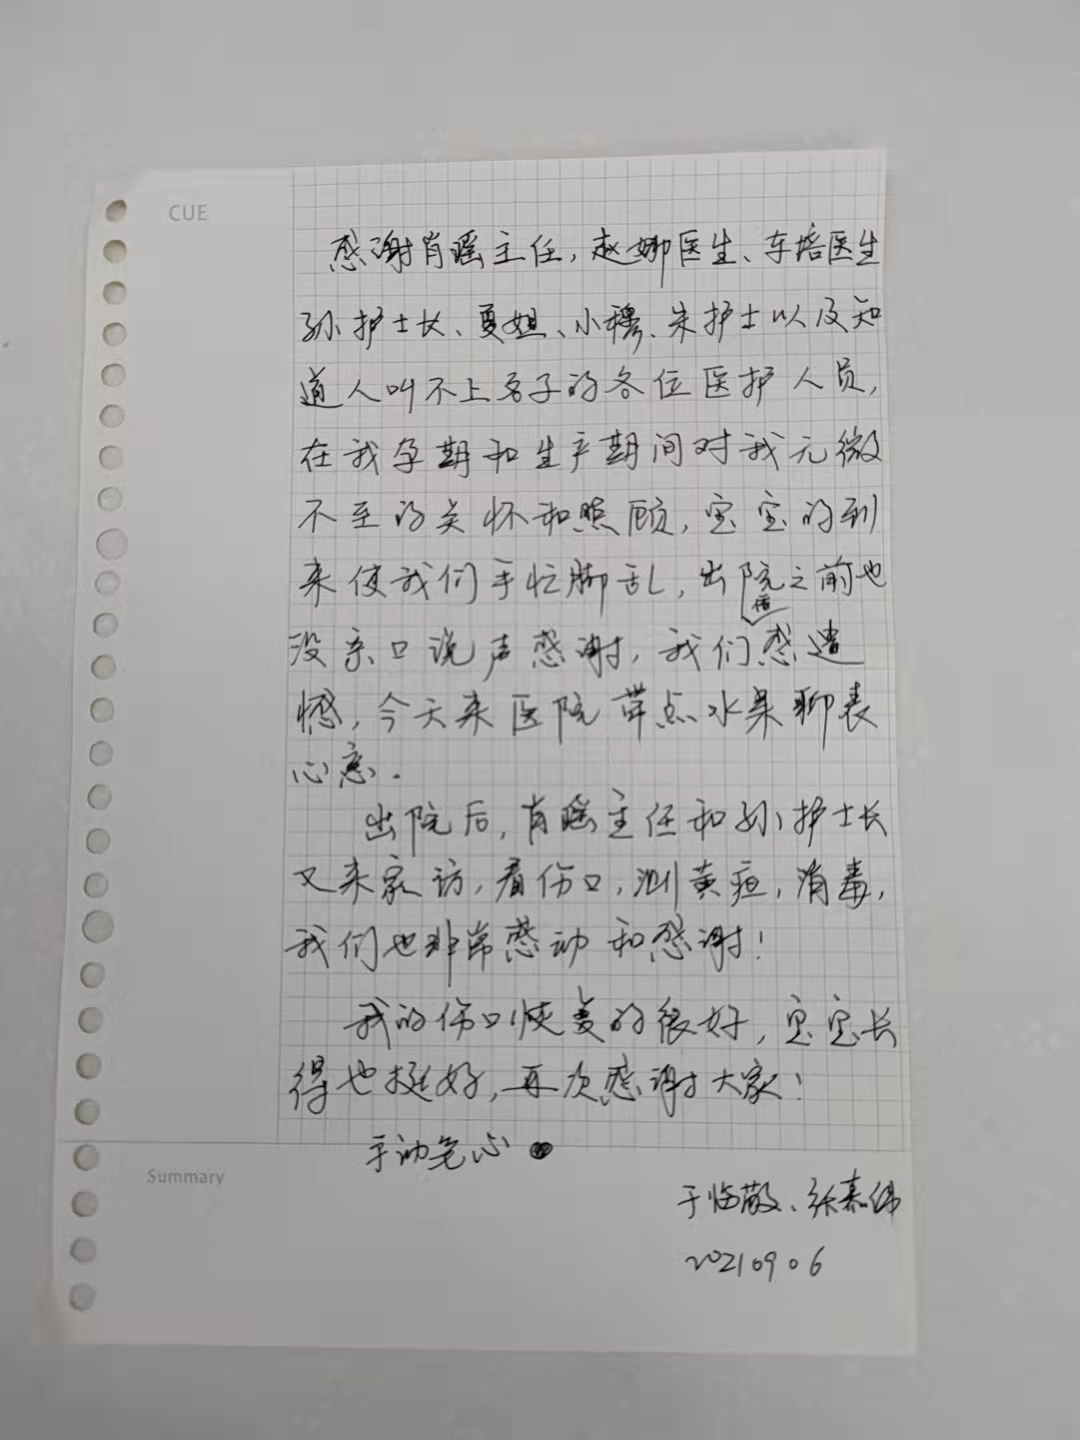 CUE
感谢肖瑶主任,赵娜医生、车培医生
孙护士长、夏姐、小穆、朱护士以及知
道人叫不上名子的各位医护人员,
在我孕期和生产期间对我无微
不至的关怀和照顾,宝宝的到
来使我们手忙脚乱,出院之前也
没亲口说声感谢,我们感遗
憾,今天来医院带点水果聊表
心意.
出院后,肖瑶主任和孙护士长
又来家访,看伤口,测黄疸,消毒,
我们也非常感动和感谢!
我的伤口恢复的很好,宝宝长
得也挺好,再次感谢大家!
手动笔心
Summary
于临敬、张嘉伟
20210906